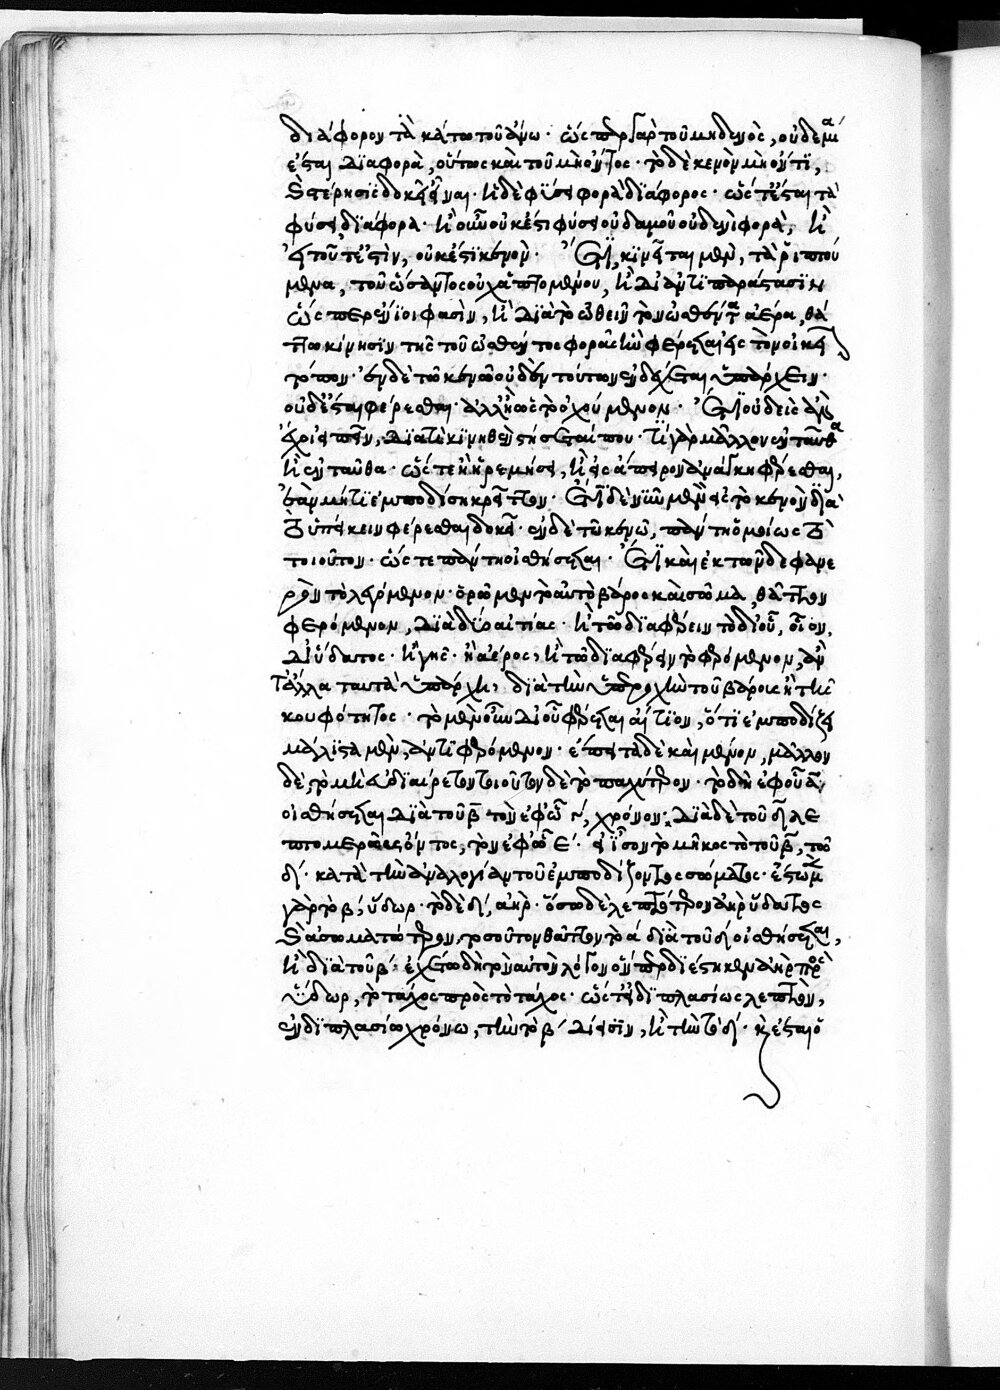 διάφορον τὸ κάτω τοῦ ἄνω· ὥσπερ γὰρ τοῦ μηδενὸς, οὐδεμία
ἔσται διαφορὰ, οὕτως καὶ τοῦ μὴ ὄντος· τὸ δὲ κενὸν μὴ ὄν τι,
στέρησις δοκεῖ εἶναι· ἡ δὲ φύσει φορὰ διάφορος· ὥστ' ἔσται τὰ
φύσει διάφορα· ἢ οὖν οὐκ ἔστι φύσει οὐδαμοῦ οὐδενὶ φορὰ, ἢ
εἰ τοῦτ' ἔστιν, οὐκ ἔστι κενόν· Ἔτι, κινεῖται μὲν, τὰ ῥιπτού
μενα, τοῦ ὤσαντος οὐχ ἁπτομένου, ἢ δι' ἀντιπαράστασιν
ὥσπερ ἔνιοι φασὶν, ἢ διὰ τὸ ὠθεῖν τὸν ὠσθέντα ἀέρα, θά
ττω κίνησιν τῆς τοῦ ὠσθέντος φορᾶς ἣν φέρεται εἰς τὸν οἰκεῖ
τόπον· ἐν δὲ τῷ κενῷ οὐδὲν τούτων ἐνδέχεται ὑπάρχειν·
οὐδ' ἔσται φέρεσθαι· ἀλλ' ἢ ὡς τὸ ὀχούμενον· Ἔτι οὐδεὶς ἂν
ἔχοι εἰπεῖν, διατί κινηθὲν στήσεταί που· τί γὰρ μᾶλλον ἐνταῦθα
ἢ ἐνταῦθα· ὥστε ἢ ἠρεμήσει, ἢ εἰς ἄπειρον ἀνάγκη φέρεσθαι,
ἐὰν μή τι ἐμποδίσῃ κρεῖττον· Ἔτι δὲ νῦν μὲν εἰς τὸ κενὸν διὰ
τὸ ὑπείκειν φέρεσθαι δοκεῖ· ἐν δὲ τῷ κενῷ, πάντη ὁμοίως τὸ
τοιοῦτον· ὥστε πάντη οἰσθήσεται· Ἔτι καὶ ἐκ τῶνδε φανε
ρὸν τὸ λεγόμενον· ὁρῶμεν τὸ αὐτὸ βάρος καὶ σῶμα, θᾶττον
φερόμενον, διὰ δύο αἰτίας· ἢ τῷ διαφέρειν τὸ δι' οὗ, οἷον,
δι' ὕδατος· ἢ γῆς· ἢ ἀέρος, ἢ τῷ διαφέρειν τὸ φερόμενον, ἂν
τἆλλα ταυτὰ ὑπάρχῃ, διὰ τὴν ὑπεροχὴν τοῦ βάρους ἢ τῆς
κουφότητος· τὸ μὲν οὖν δι' οὗ φέρεται αἴτιον, ὅτι ἐμποδίζει
μάλιστα μὲν, ἀντιφερόμενον· ἔπειτα δὲ καὶ μένον, μᾶλλον
δὲ, τὸ μὴ εὐδιαίρετον τοιοῦτον δὲ τὸ παχύτερον· τὸ δὴ ἐφ' οὗ α,
οἰσθήσεται διὰ τοῦ β τὸν ἐφ' ᾧ γ, χρόνον· διὰ δὲ τοῦ δ λε
πτομεροῦς ὄντος, τὸν ἐφ' ᾧ ε· εἰ ἴσον τὸ μῆκος τὸ τοῦ β, τῷ
δ· κατὰ τὴν ἀναλογίαν τοῦ ἐμποδίζοντος σώματος· ἔστω μὲν
γὰρ τὸ β, ὕδωρ· τὸ δὲ δ, ἀήρ· ὅσῳ δὲ λεπτότερον ἀὴρ ὕδατος
ἀσωματώτερον, τοσοῦτον θᾶττον τὸ α διὰ τοῦ δ οἰσθήσεται,
ἢ διὰ τοῦ β· ἐχέτω δὴ τὸν αὐτὸν λόγον ὅνπερ διέστηκεν ἀὴρ πρὸς
ὕδωρ, τὸ τάχος πρὸς τὸ τάχος· ὥστ' εἰ διπλασίως λεπτὸν,
ἐν διπλασίῳ χρόνῳ, τὴν τὸ β δίεισιν, ἢ τὴν τὸ δ· καὶ ἔσται ὁ